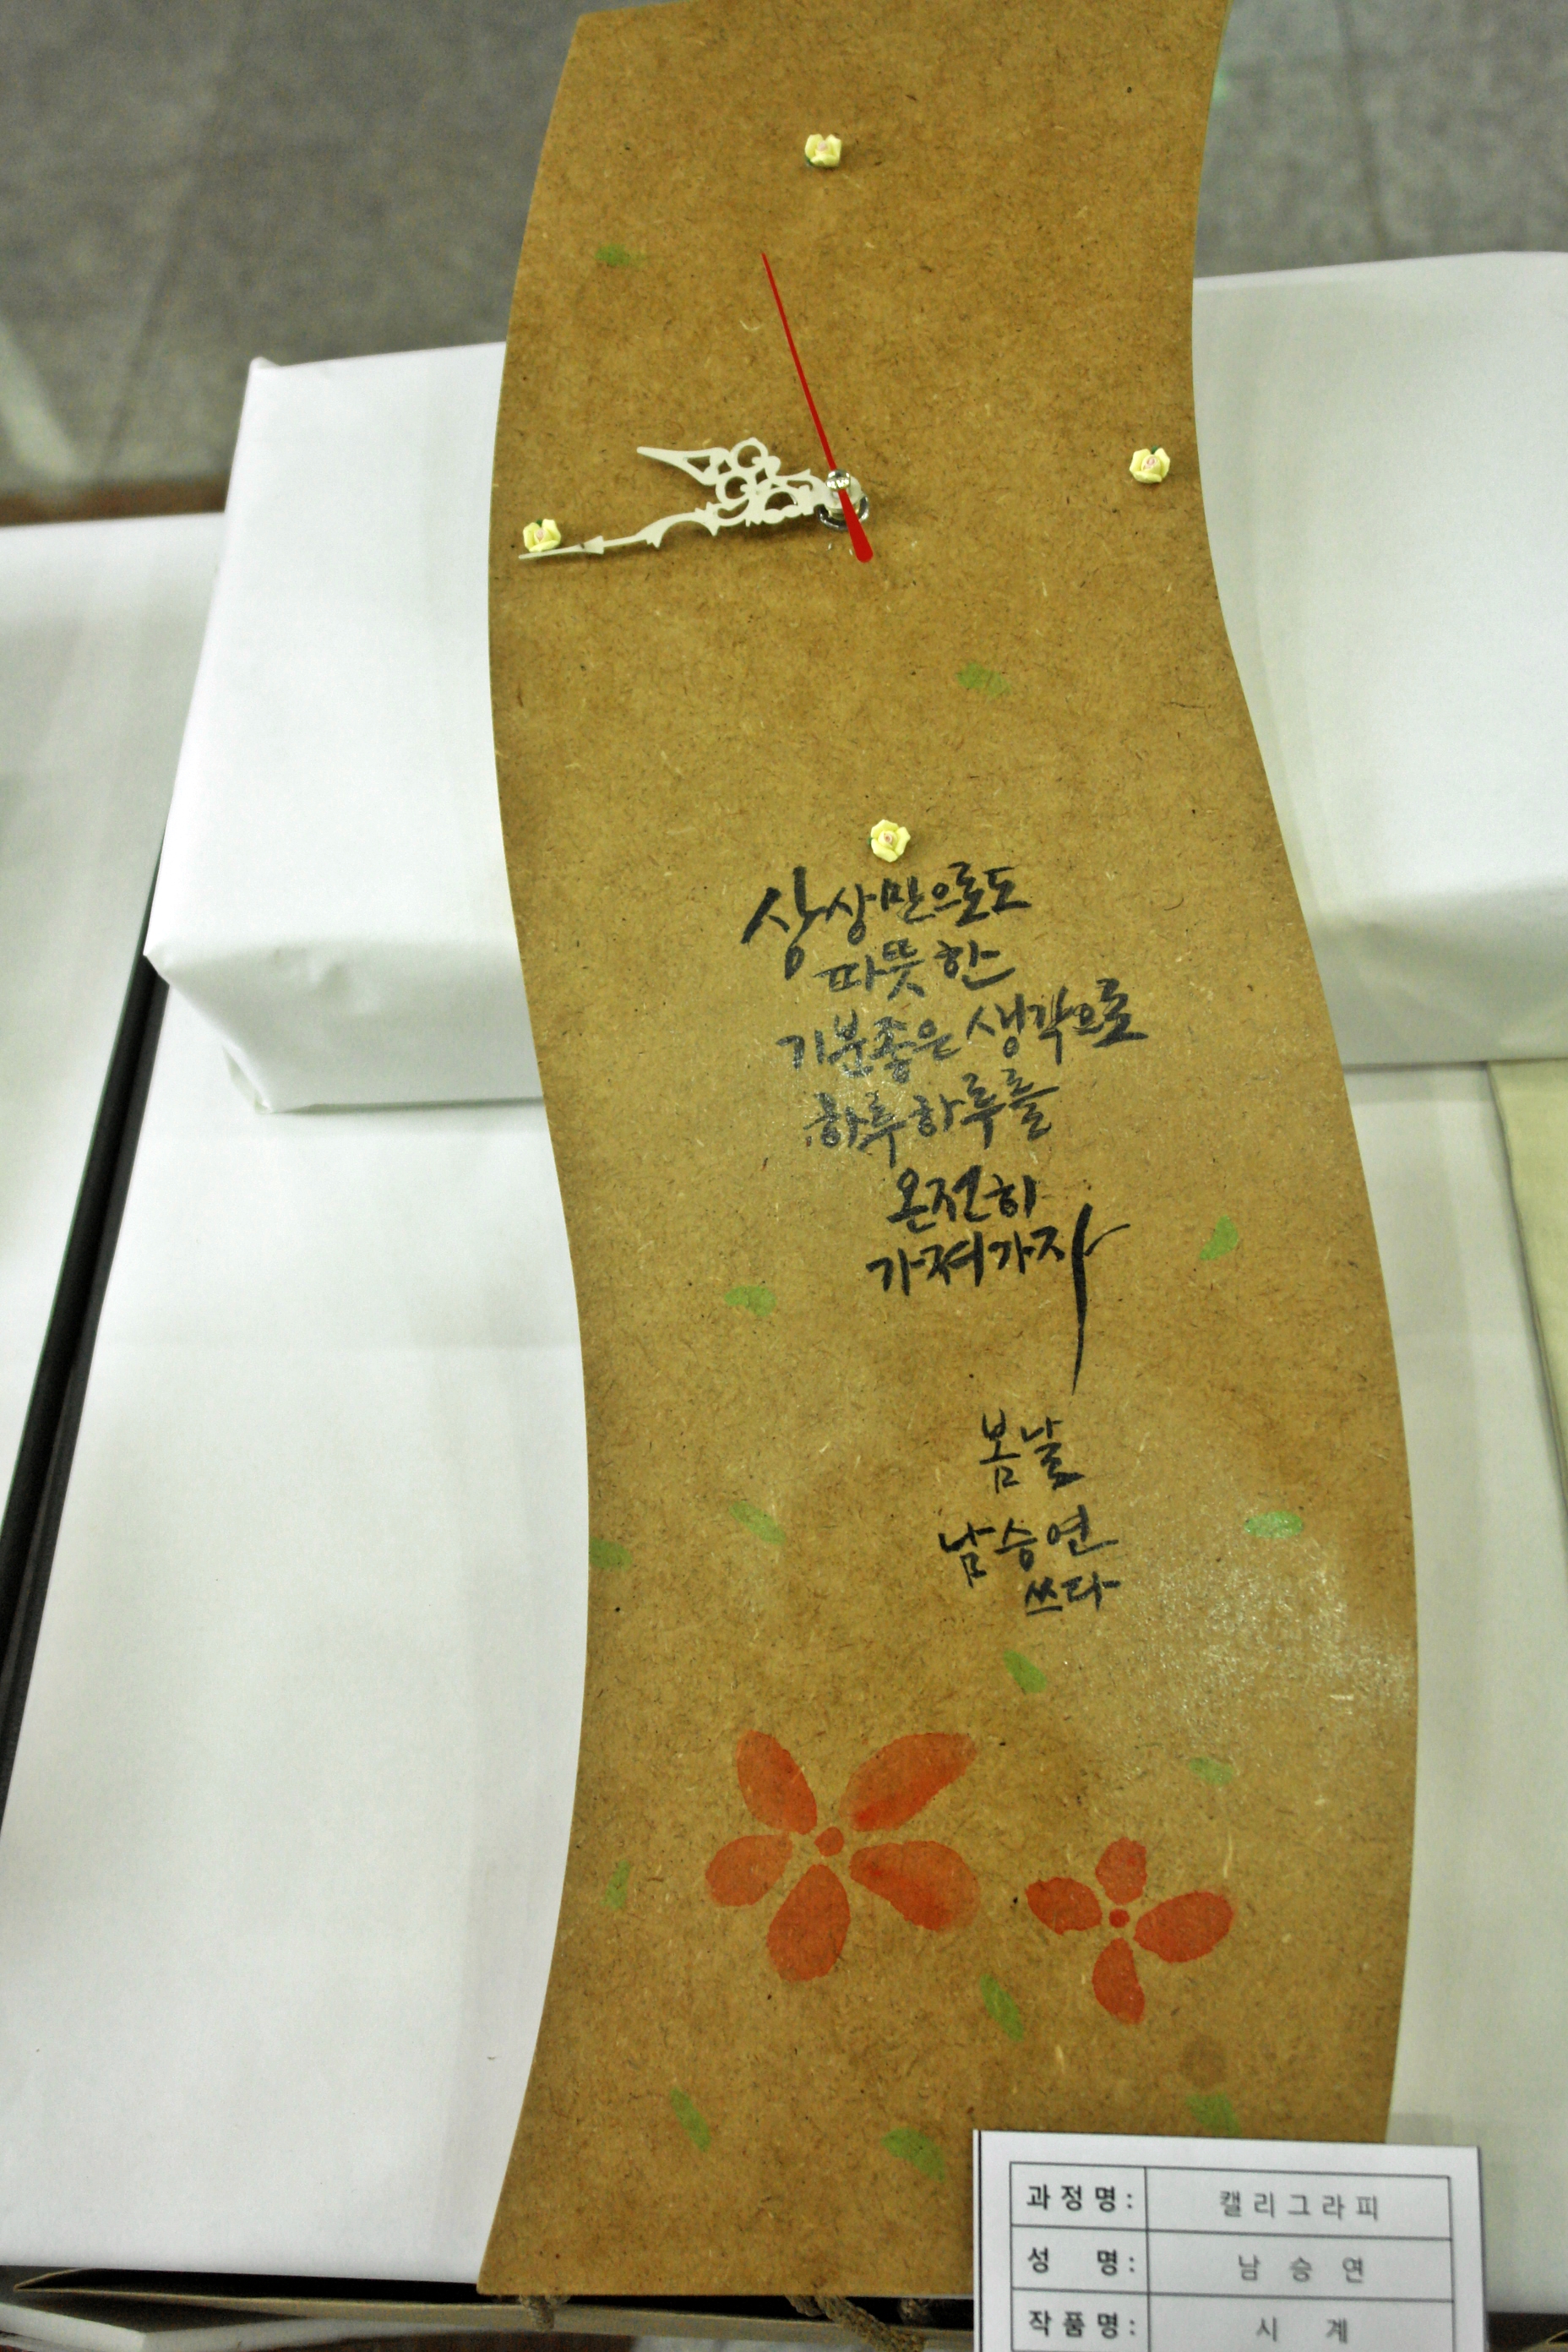 상상만으로도
따뜻한
기분좋은 생각으로
하루하루를
온전히
가져가자
봄날
남승연
쓰다
과정명: 캘리그라피
성 명: 남 승 연
작품명: 시 계